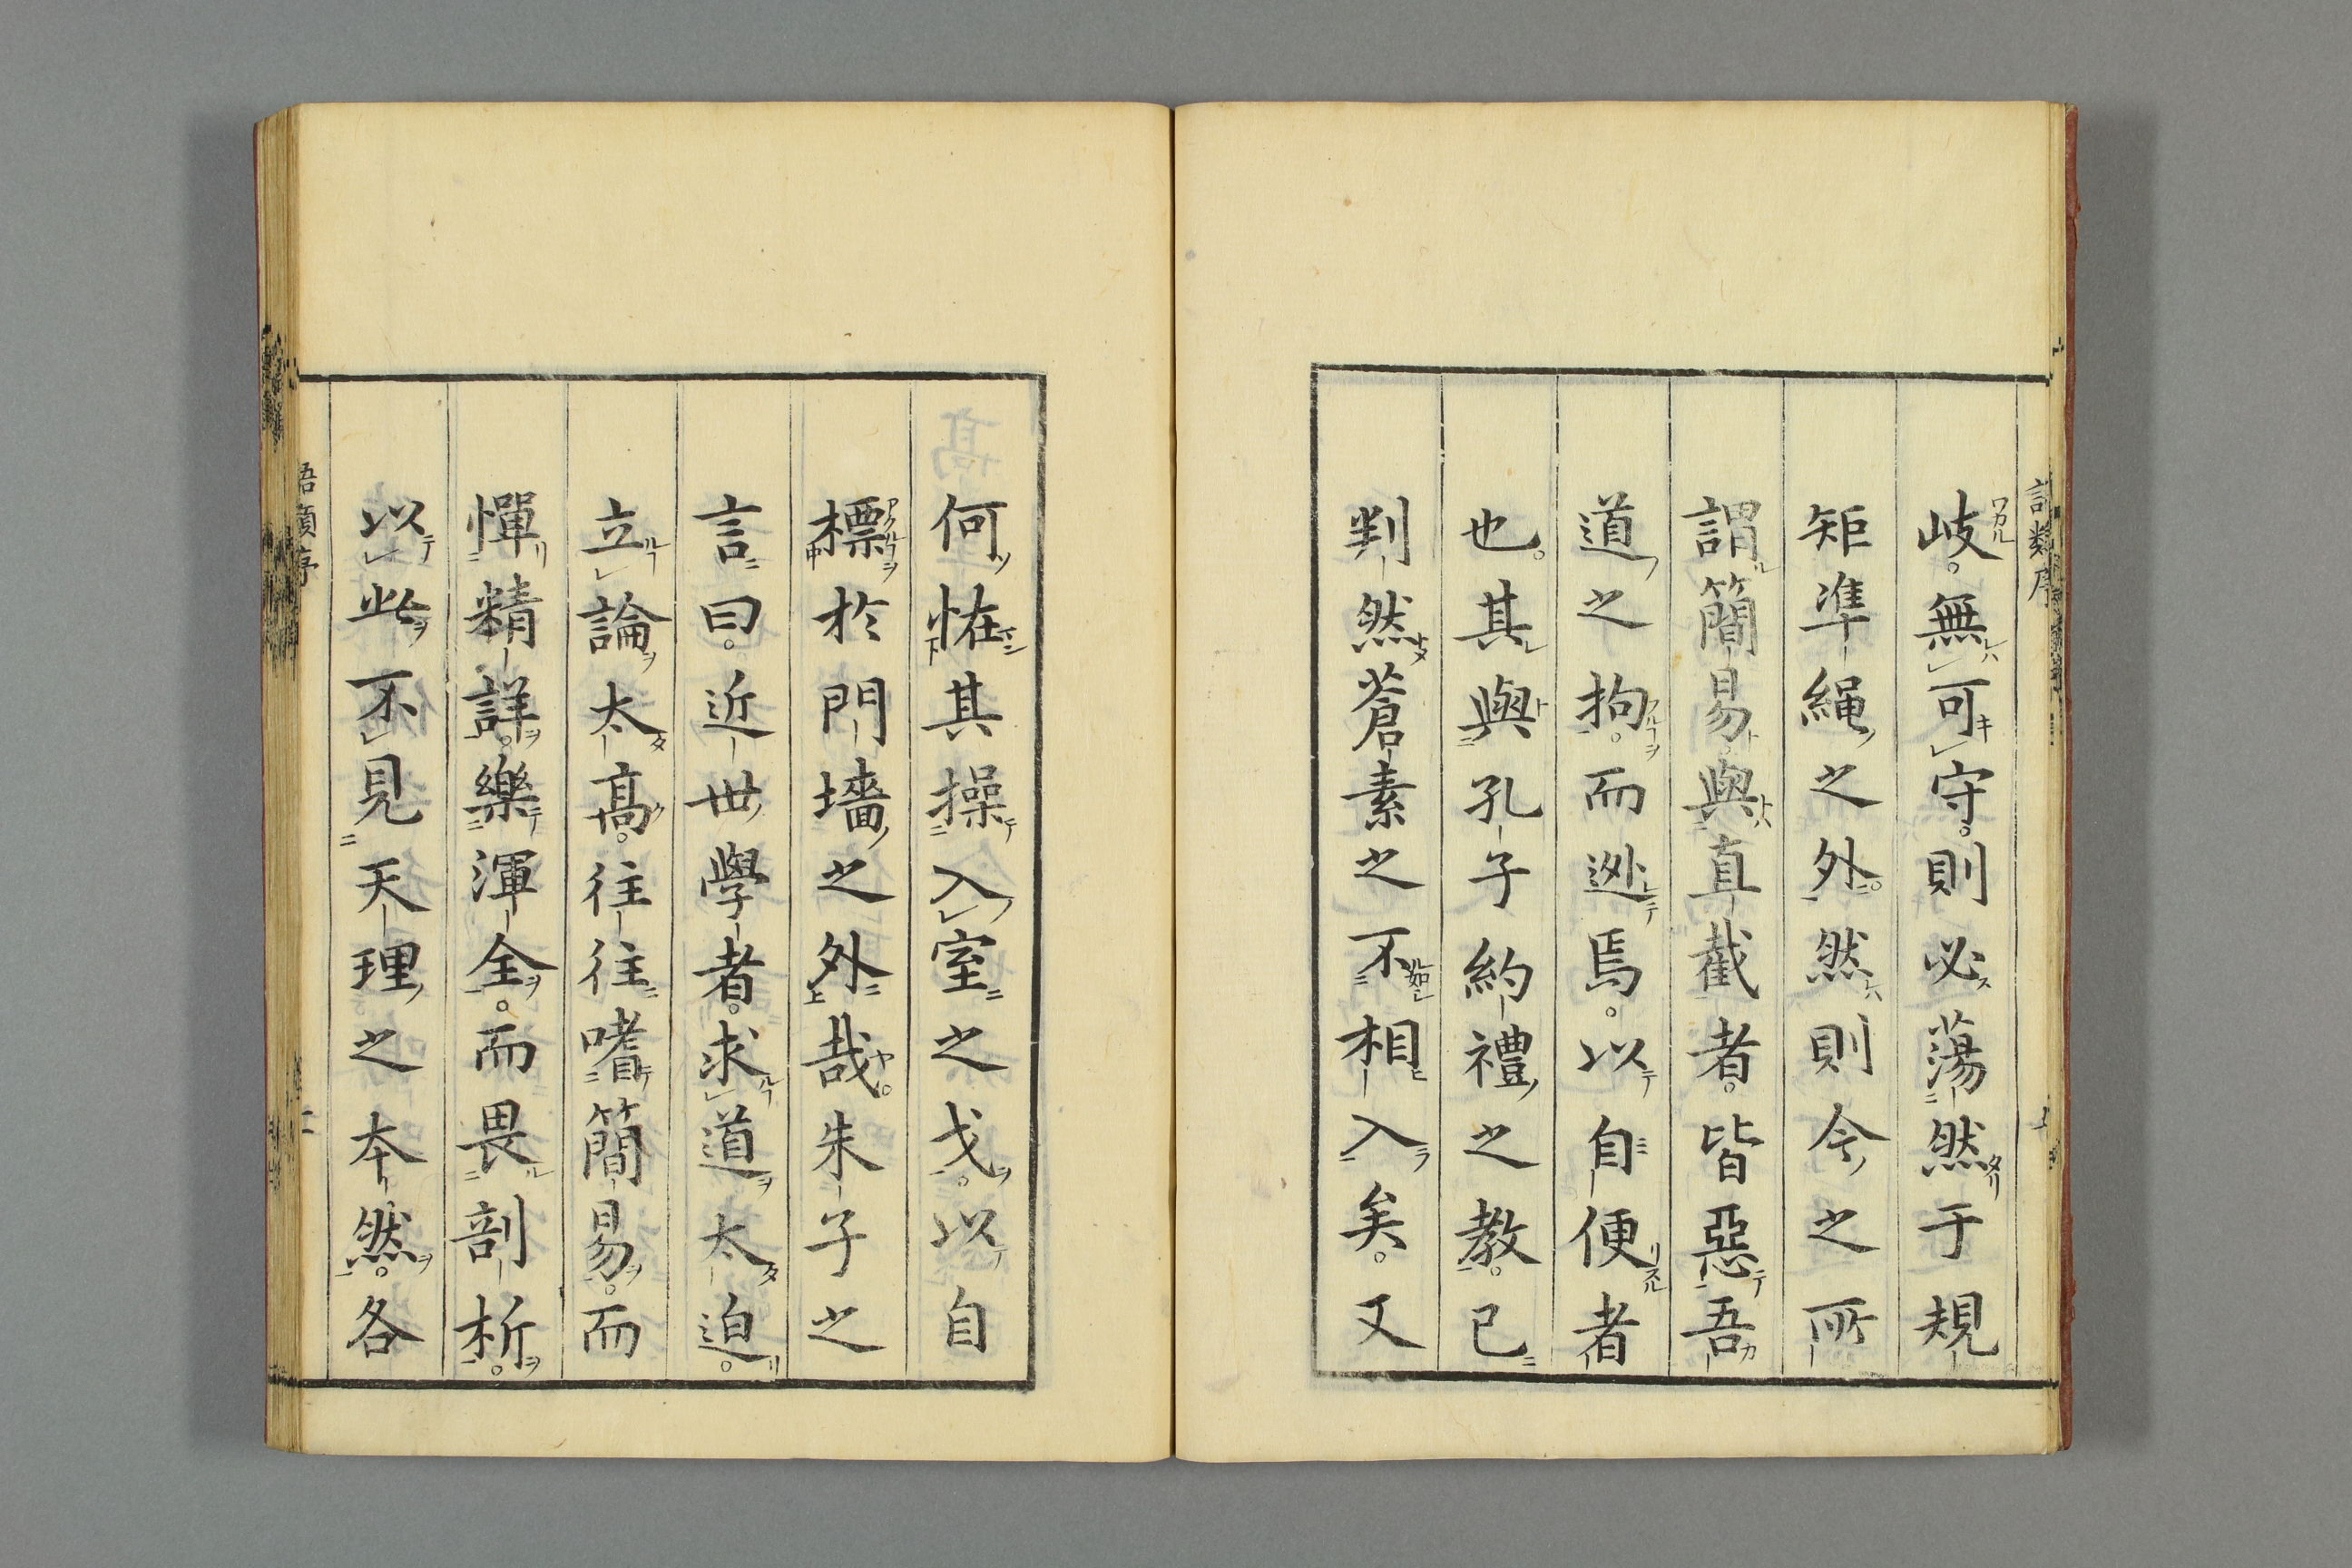 岐。無可守。則必蕩然于規
矩準繩之外。然則今之所
謂簡易與直截者。皆惡吾
道之拘。而逊焉。以自便者
也。其與孔子約禮之教。已
判然蒼素之不相入矣。又
何怪其操入室之戈。以自
標於門墻之外哉。朱子之
言曰。近世學者。求道太迫。
立論太高。往往嗜簡易。而
憚精詳。樂渾全。而畏剖析。
以此不見天理之本然。各